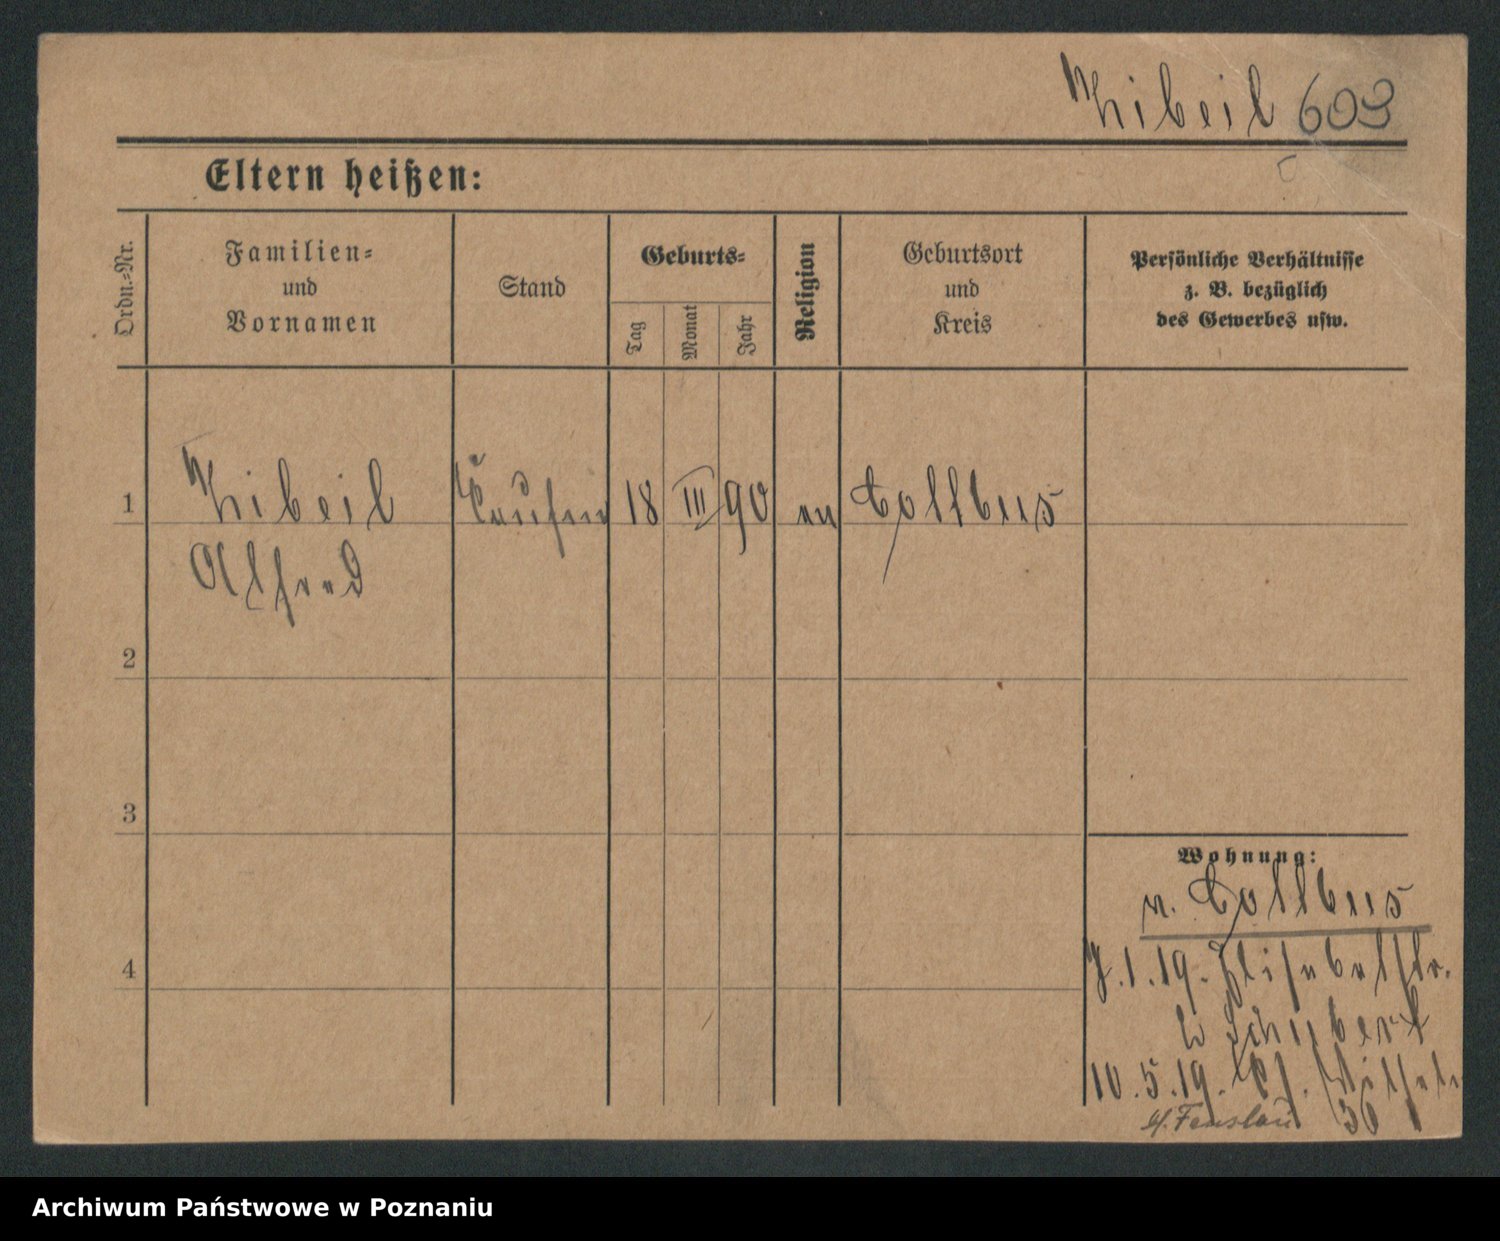 Zibeil 603
Eltern heißen:
Ordn.-Nr.
Familien-
und
Vornamen
Stand
Geburts-
Tag
Monat
Jahr
Religion
Geburtsort
und
Kreis
Persönliche Verhältnisse
z. B. bezüglich
des Gewerbes usw.
1 18 III 90 ev Cottbus
Alfred
2
3
4
Wohnung:
v. Cottbus
7.1.19. Elisabethstr.
2 Schubert
10.5.19.
36
Archiwum Państwowe w Poznaniu